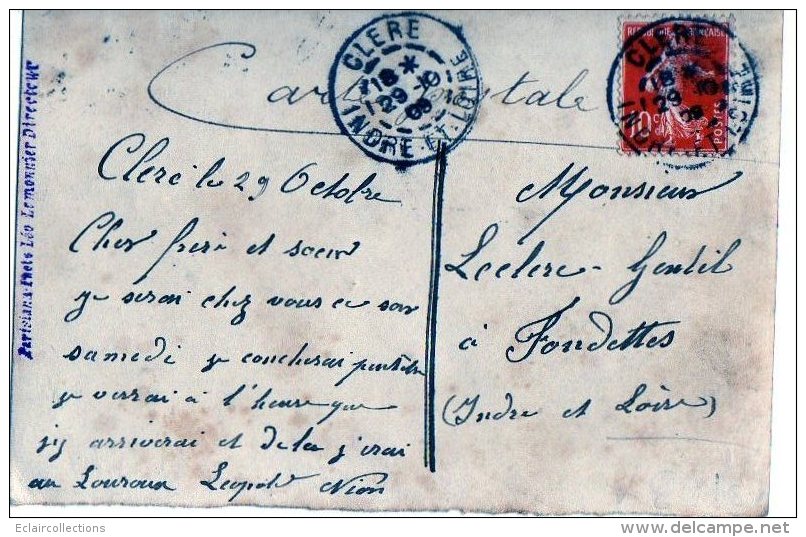 Parisiana-Photo Léo Lemonnier Directeur
CLERE
18 *
29 -10
08
INDRE-ET-LOIRE
REPUBLIQUE FRANÇAISE
CLERE
18 *
29 10
08
INDRE-ET-LOIRE
POSTES
Carte postale
Cleré le 29 Octobre
Cher frère et soeur
je serai chez vous ce soir
samedi je coucherai peut etre
je verrai à l'heure que
j'y arriverai et de la j'irai
au Louroux Leopold Nion
Monsieur
Leclerc-Gentil
à Fondettes
(Indre et Loire)
Eclaircollections
delcampe.net